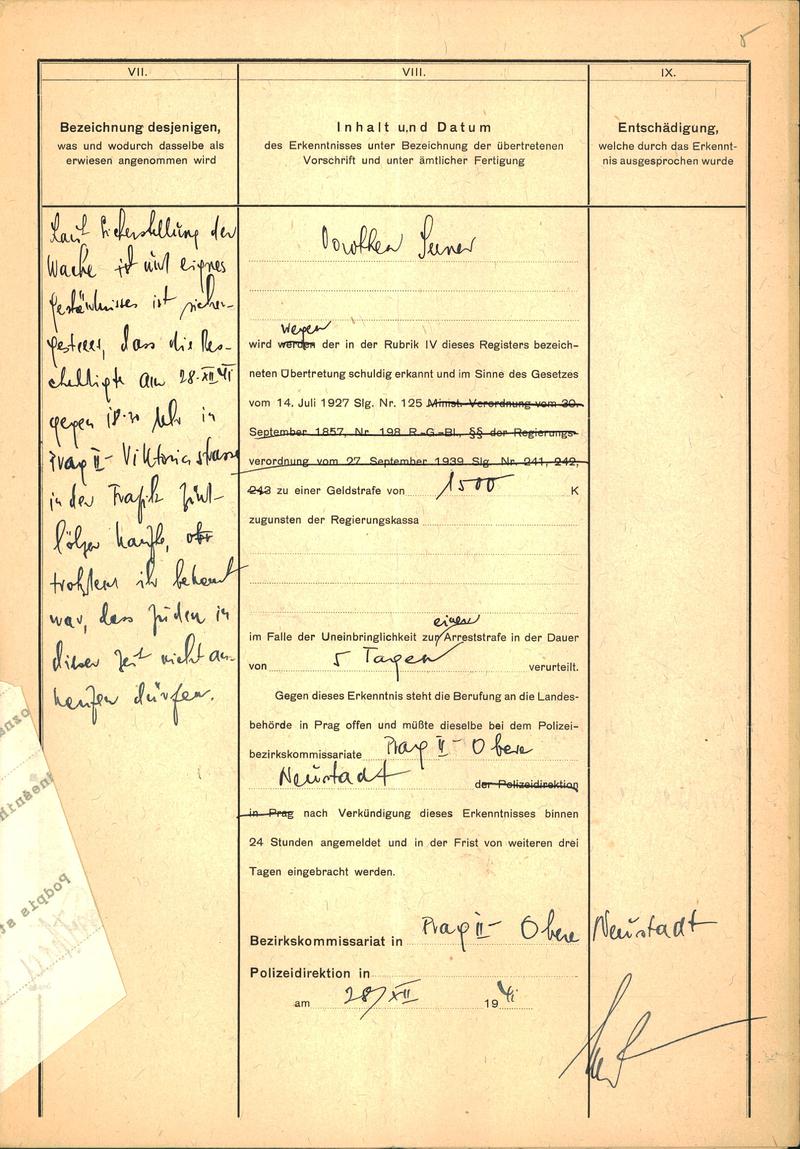 5
VII.
Bezeichnung desjenigen,
was und wodurch dasselbe als
erwiesen angenommen wird
Laut Sicherstellung der
Wache ist und eignes
Geständnisses ist sicher-
gestellt, dass die Bes-
chuldigte am 28.XII 41
gegen 18.20 Uhr in
Prag II - Viktoriastrasse
in der Trafik Zünd-
hölzer kaufte,
trotzdem ihr bekannt
war, dass Juden in
dieser Zeit nicht an-
kaufen dürfen.
VIII.
Inhalt und Datum
des Erkenntnisses unter Bezeichnung der übertretenen
Vorschrift und unter ämtlicher Fertigung
Dorothea
wegen
wird werden der in der Rubrik IV dieses Registers bezeich-
neten Übertretung schuldig erkannt und im Sinne des Gesetzes
vom 14. Juli 1927 Slg. Nr. 125 Minist. Verordnung vom 30.
September 1857, Nr. 198 R.-G.-Bl., §§ der Regierungs-
verordnung vom 27. September 1939 Slg. Nr. 241, 242,
243 zu einer Geldstrafe von 1500 K
zugunsten der Regierungskassa
einer
im Falle der Uneinbringlichkeit zur Arreststrafe in der Dauer
von 5 Tagen verurteilt.
Gegen dieses Erkenntnis steht die Berufung an die Landes-
behörde in Prag offen und müßte dieselbe bei dem Polizei-
bezirkskommissariate Prag II - Obere
Neustadt der Polizeidirektion
in Prag nach Verkündigung dieses Erkenntnisses binnen
24 Stunden angemeldet und in der Frist von weiteren drei
Tagen eingebracht werden.
Bezirkskommissariat in Prag II - Obere Neustadt
Polizeidirektion in
am 28/XII 1941
IX.
Entschädigung,
welche durch das Erkennt-
nis ausgesprochen wurde
Podpis st